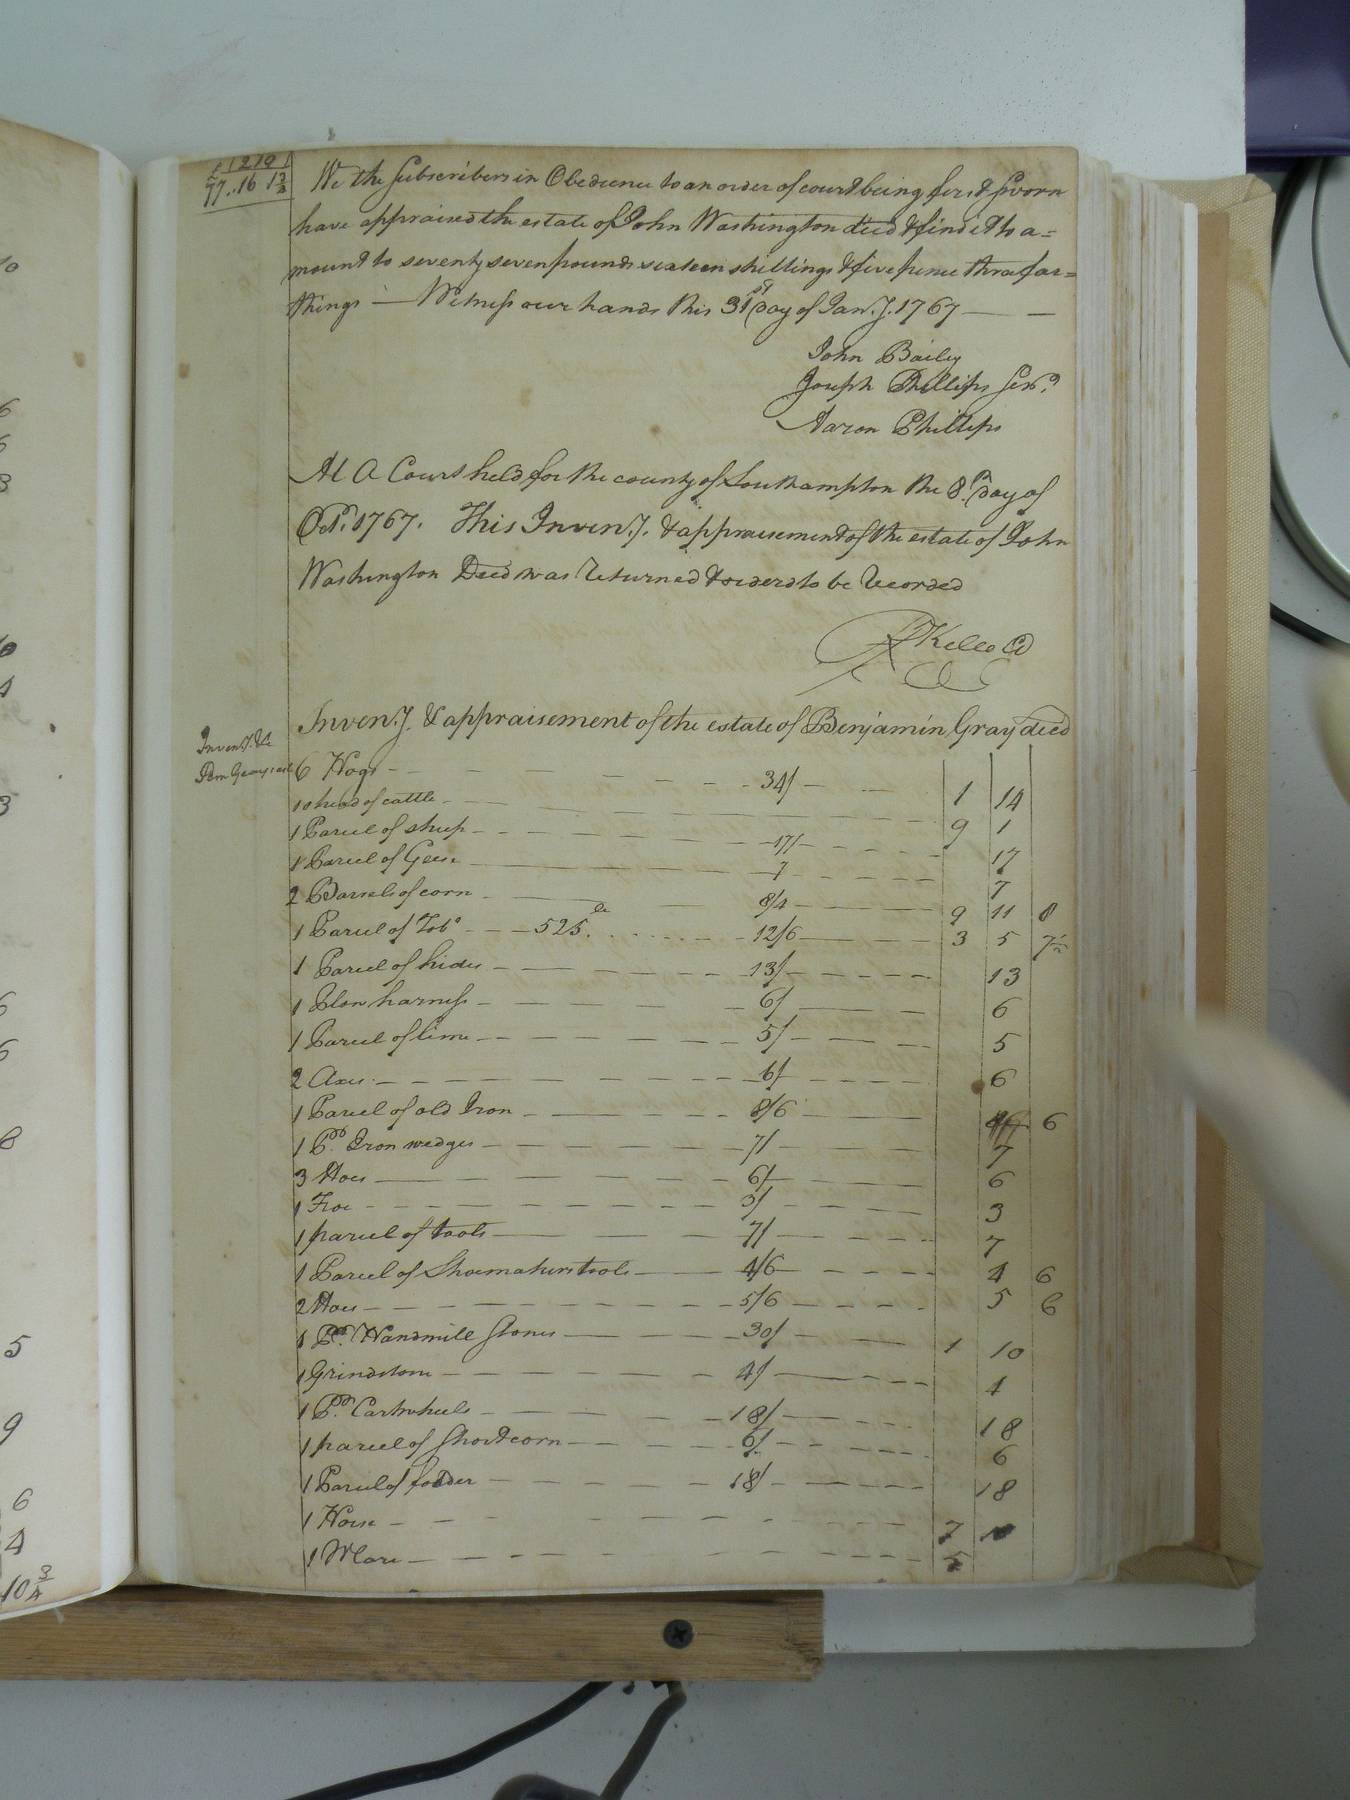 We the Subscribers in Obedience to an order of court being first Sworn
have appraised the estate of John Washington decd & find it to a=
mount to seventy seven pounds sixteen shillings & five pence three far=
things — Witness our hands this 31st day of Jany. 1767 — —
John Bailey
Joseph Phillips Senr.
Aaron Phillips
At A Court held for the county of Southampton the 8th. day of
Oct. 1767. This Inveny. & appraisement of the estate of John
Washington Decd was Returned & orderd to be Recorded
R Kello
Inveny. & appraisement of the estate of Benjamin Gray decd
6 Hogs 34/ 1 14
10 head of cattle 9 1
1 Parcel of sheep 17/ 17
1 Parcel of Geese 7 7
2 Barrels of corn 8/4 9 11 8
1 Parcel of Tobo 525 12/6 3 5 7½
1 Parcel of hides 13/ 13
1 harness 6/ 6
1 Parcel of lime 5/ 5
2 Axes 6/ 6
1 Parcel of old Iron 8/6 6
1 Pr. Iron wedges 7/ 7
3 Hoes 6/ 6
1 Froe 3/ 3
1 parcel of tools 7/ 7
1 Parcel of Shoemakers tools 4/6 4 6
2 Hoes 5/6 5 6
1 Pr. Handmill Stones 30/ 1 10
1 Grindstone 4/ 4
1 Pr. Cartwheels 18/ 18
1 parcel of Short corn 6/ 6
1 Parcel of fodder 18/ 18
1 Horse 7 10
1 Mare 5